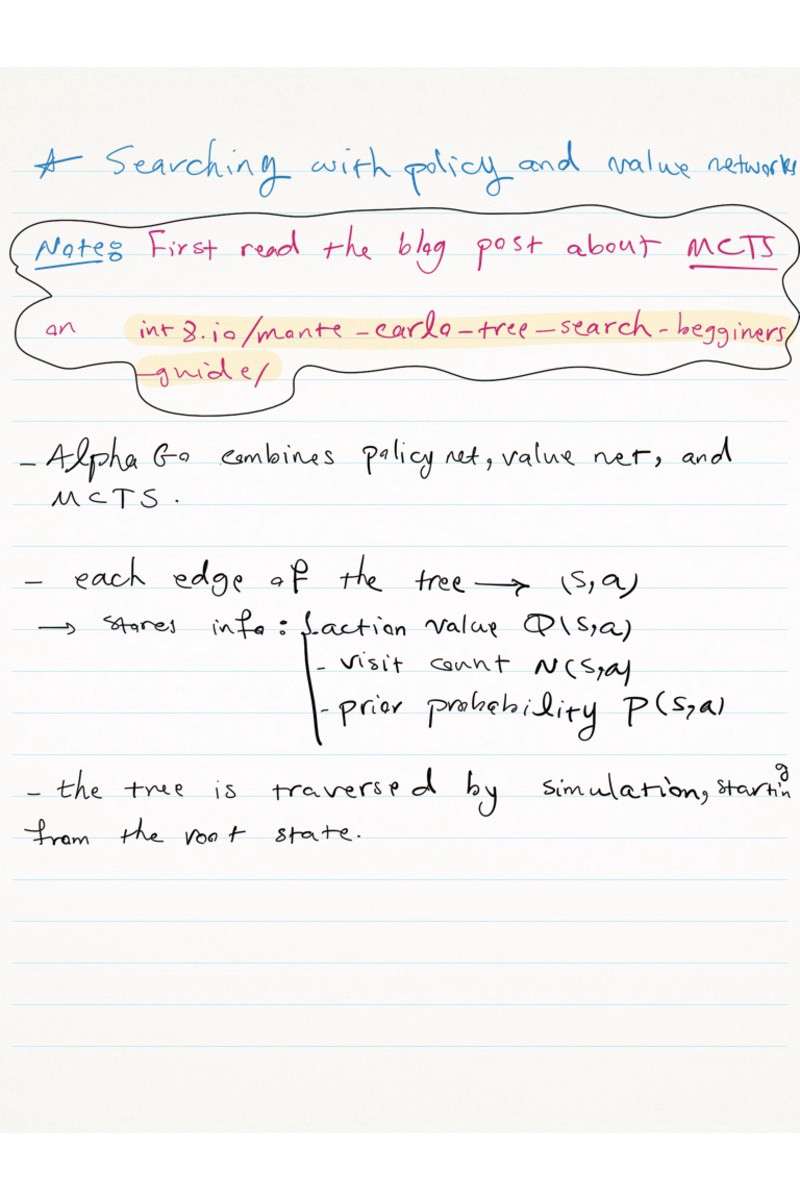 ☆ Searching with policy and value networks
Note: First read the blog post about MCTS
on int8.io/monte-carlo-tree-search-begginers
-guide/
- AlphaGo combines policy net, value net, and
MCTS.
- each edge of the tree → (s,a)
→ stores info: - action value Q(s,a)
- visit count N(s,a)
- prior probability P(s,a)
- the tree is traversed by simulation, starting
from the root state.